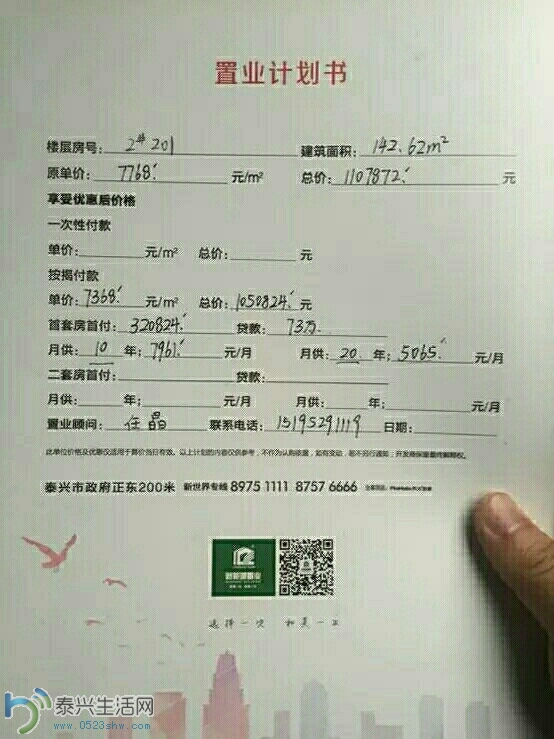 置业计划书
楼层房号: 2# 201 建筑面积: 142.62m²
原单价: 7768. 元/m² 总价: 1107872. 元
享受优惠后价格
一次性付款
单价: 元/m² 总价: 元
按揭付款
单价: 7368. 元/m² 总价: 1050824. 元
首套房首付: 320824. 贷款: 73万.
月供: 10 年; 7961. 元/月 月供: 20 年; 5065. 元/月
二套房首付: 贷款:
月供: 年; 元/月 月供: 年; 元/月
置业顾问: 任晶 联系电话: 15195291119 日期:
此单位价格及优惠仅适用于算价当日有效。以上计划的内容仅供参考,不作为认购依据,如有变动,恕不另行通知,开发商保留最终解释权。
泰兴市政府正东200米 新世界专线 8975 1111 8757 6666
选择一次 和美一生
泰兴生活网
www.0523shw.com